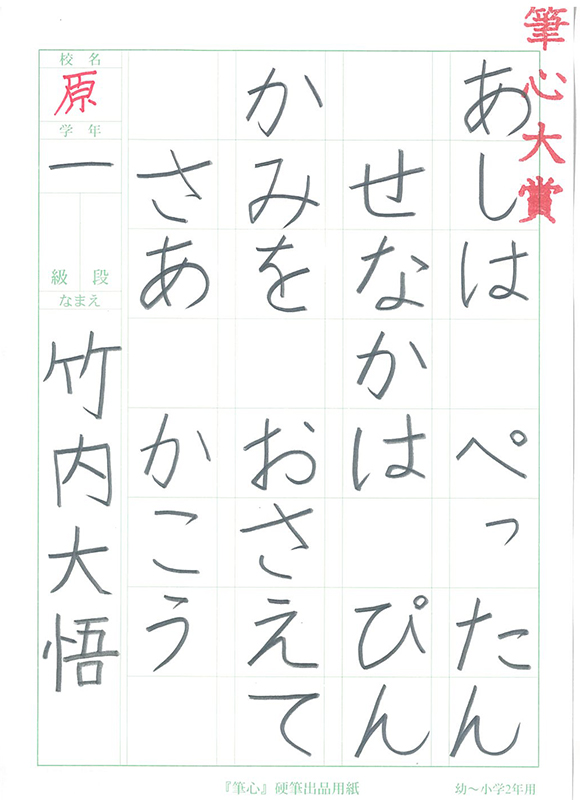 筆心大賞
あしは ぺったん
せなかは ぴん
かみを おさえて
さあ かこう
校名
原
学年
一
級 段
なまえ
竹内大悟
『筆心』硬筆出品用紙
幼〜小学2年用